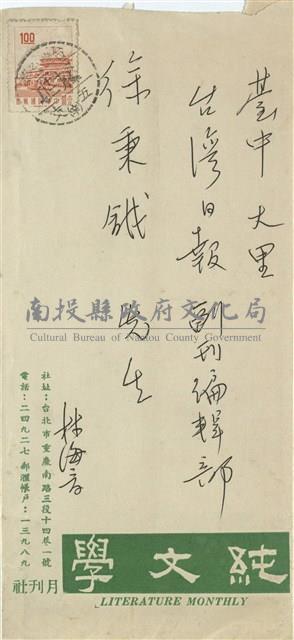 臺中 大里
台灣日報 副刊編輯部
徐秉鉞 先生
林海音
1.00
南投縣政府文化局
Cultural Bureau of Nantou County Government
社址：台北市重慶南路三段十四巷一號
電話：二四九二七 郵滙帳戶：一三九八九
純文學
月刊社
LITERATURE MONTHLY